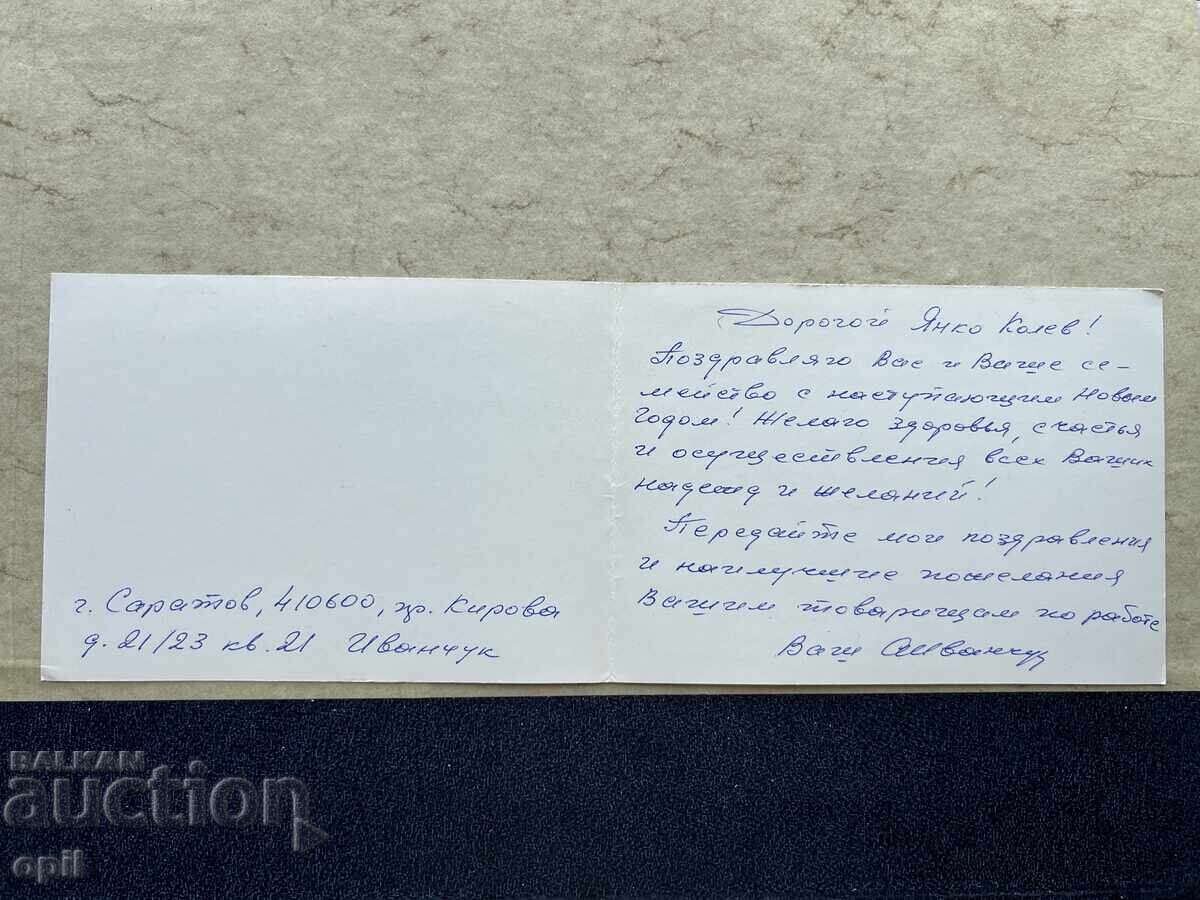 г. Саратов, 410600, пр. Кирова
д. 21/23 кв. 21 Иванчук
Дорогой Янко Колев!
Поздравляю Вас и Ваше се-
мейство с наступающим Новым
Годом! Желаю здоровья, счастья
и осуществления всех Ваших
надежд и желаний!
Передайте мои поздравления
и наилучшие пожелания
Вашим товарищам по работе
Ваш АИванчук
BALKAN
auction
opil